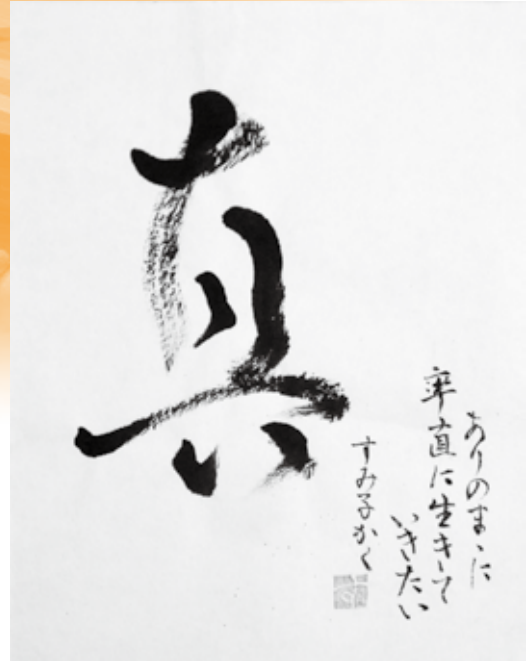 真
ありのまゝに
率直に生きて
いきたい
すみ子かく